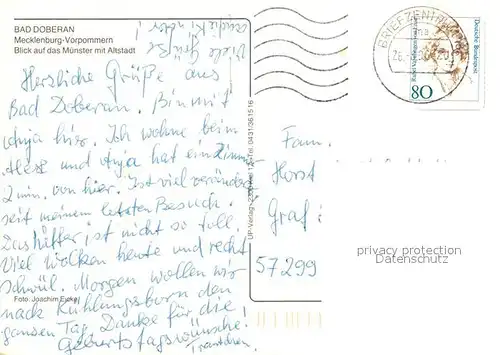 BAD DOBERAN
Mecklenburg-Vorpommern
Blick auf das Münster mit Altstadt
Viele Grüße
Herzliche Grüße aus
Bad Doberan. Bin mit
hier. Ich wohne beim
und hat ein Zimmer
2 min. von hier. Ist viel verändert
seit meinem letzten Besuch.
Das Wetter ist nicht so toll.
Viel Wolken heute und recht
schwül. Morgen wollen wir
nach Kühlungsborn den
ganzen Tag. Danke für die
Geburtstagswünsche!
Foto: Joachim Eickel
UP-Verlag
BRIEFZENTRUM
Deutsche Bundespost
80
Fam.
Horst
Graf
57299
privacy protection
Datenschutz